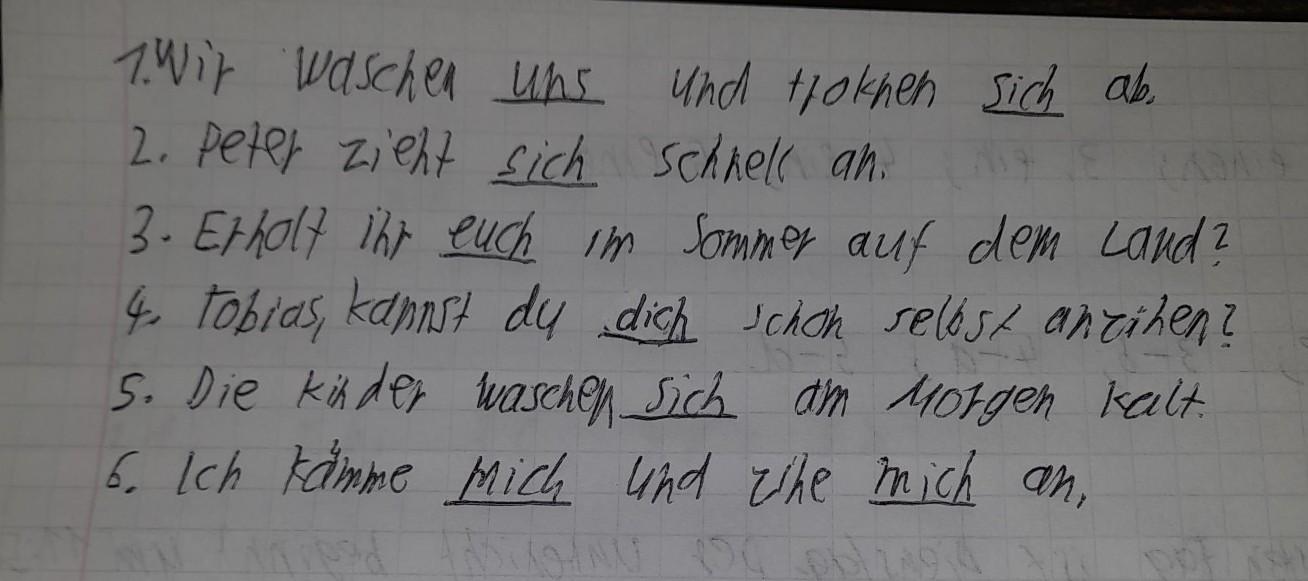 1. Wir waschen uns und troknen sich ab.
2. Peter zieht sich schnell an.
3. Erholt ihr euch im Sommer auf dem Land?
4. Tobias, kannst du dich schon selbst anzihen?
5. Die kinder waschen sich am Morgen kalt.
6. Ich kämme mich und zihe mich an.